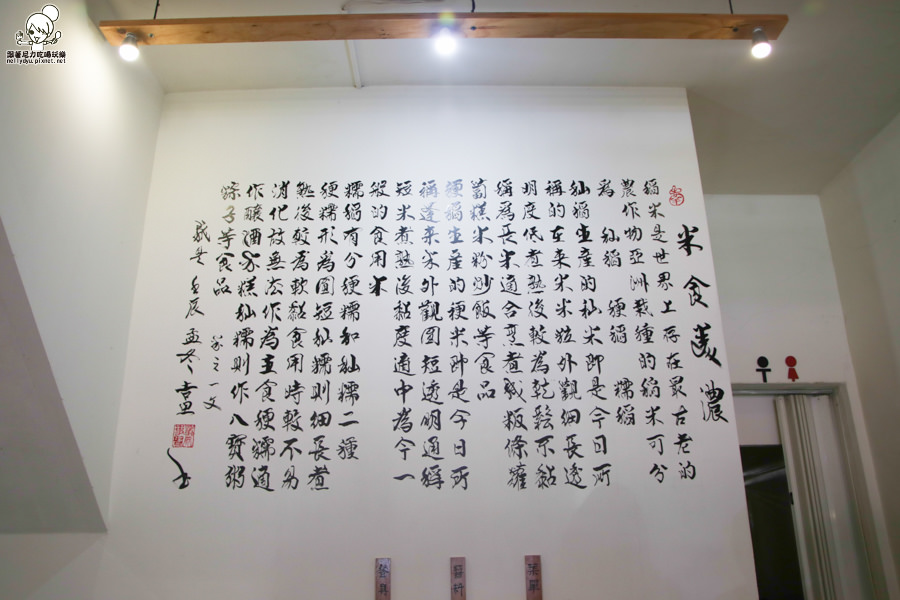 米食美濃
稻米是世界上存在最古老的
農作物亞洲栽種的稻米可分
為 秈稻 粳稻 糯稻
秈稻生產的秈米即是今日所
稱的在來米米粒外觀細長透
明度低煮熟後較為乾鬆不黏
稱為長米適合烹煮或粄條蘿
蔔糕米粉炒飯等食品
粳稻生產的粳米即是今日所
稱蓬來米外觀圓短透明通稱
短米煮熟後黏度適中為今一
般的食用米
糯稻有分粳糯和秈糯二種
粳糯形為圓短秈糯則細長煮
熟後較為軟黏食用時較不易
消化故無法作為主食粳糯適
作釀酒年糕秈糯則作八寶粥
粽子等食品
歲安壬辰孟冬
跟著尼力吃喝玩樂
nellydyu.pixnet.net